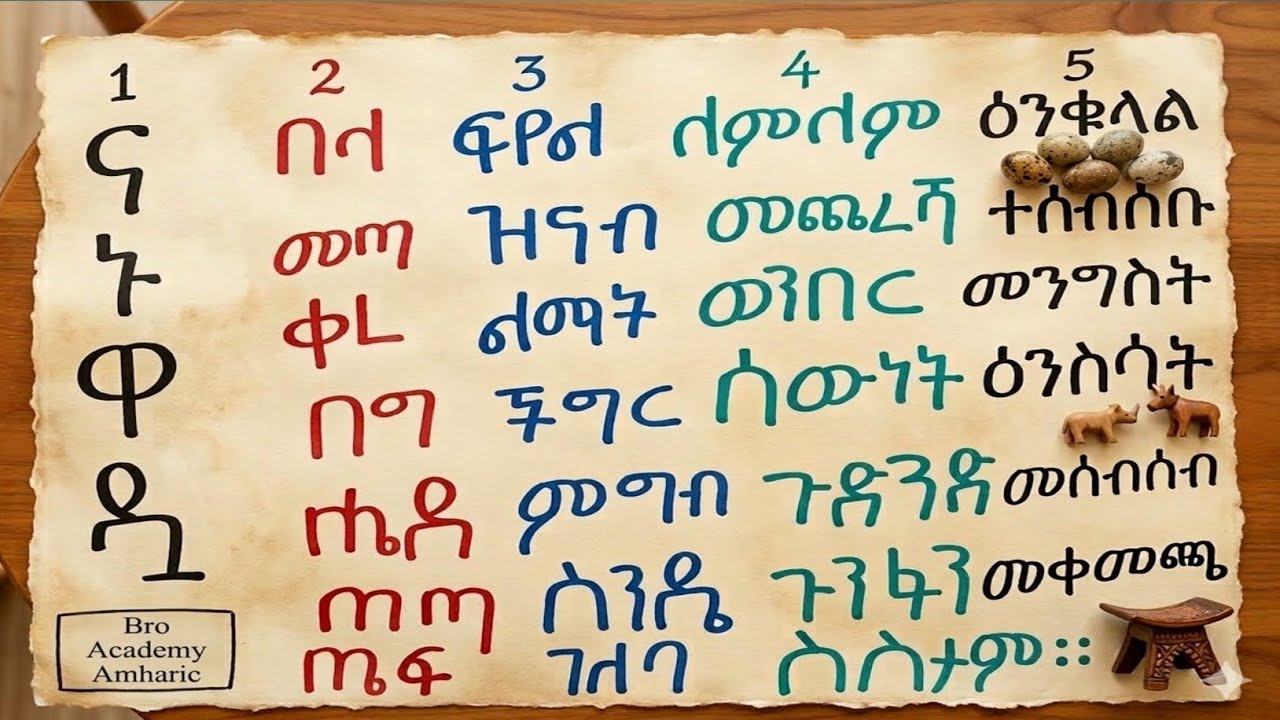 1
ና
ኑ
ዋ
ዷ
2
በላ
መጣ
ቀረ
በግ
ሔደ
ጠጣ
ጤፍ
3
ፍየል
ዝናብ
ልማት
ችግር
ምግብ
ስንዴ
ገለባ
4
ለምለም
መጨረሻ
ወንበር
ሰውነት
ጉድጓድ
ጉንፋን
ስስታም።
5
ዕንቁላል
ተሰብሰቡ
መንግስት
ዕንስሳት
መሰብሰብ
መቀመጫ
Bro
Academy
Amharic